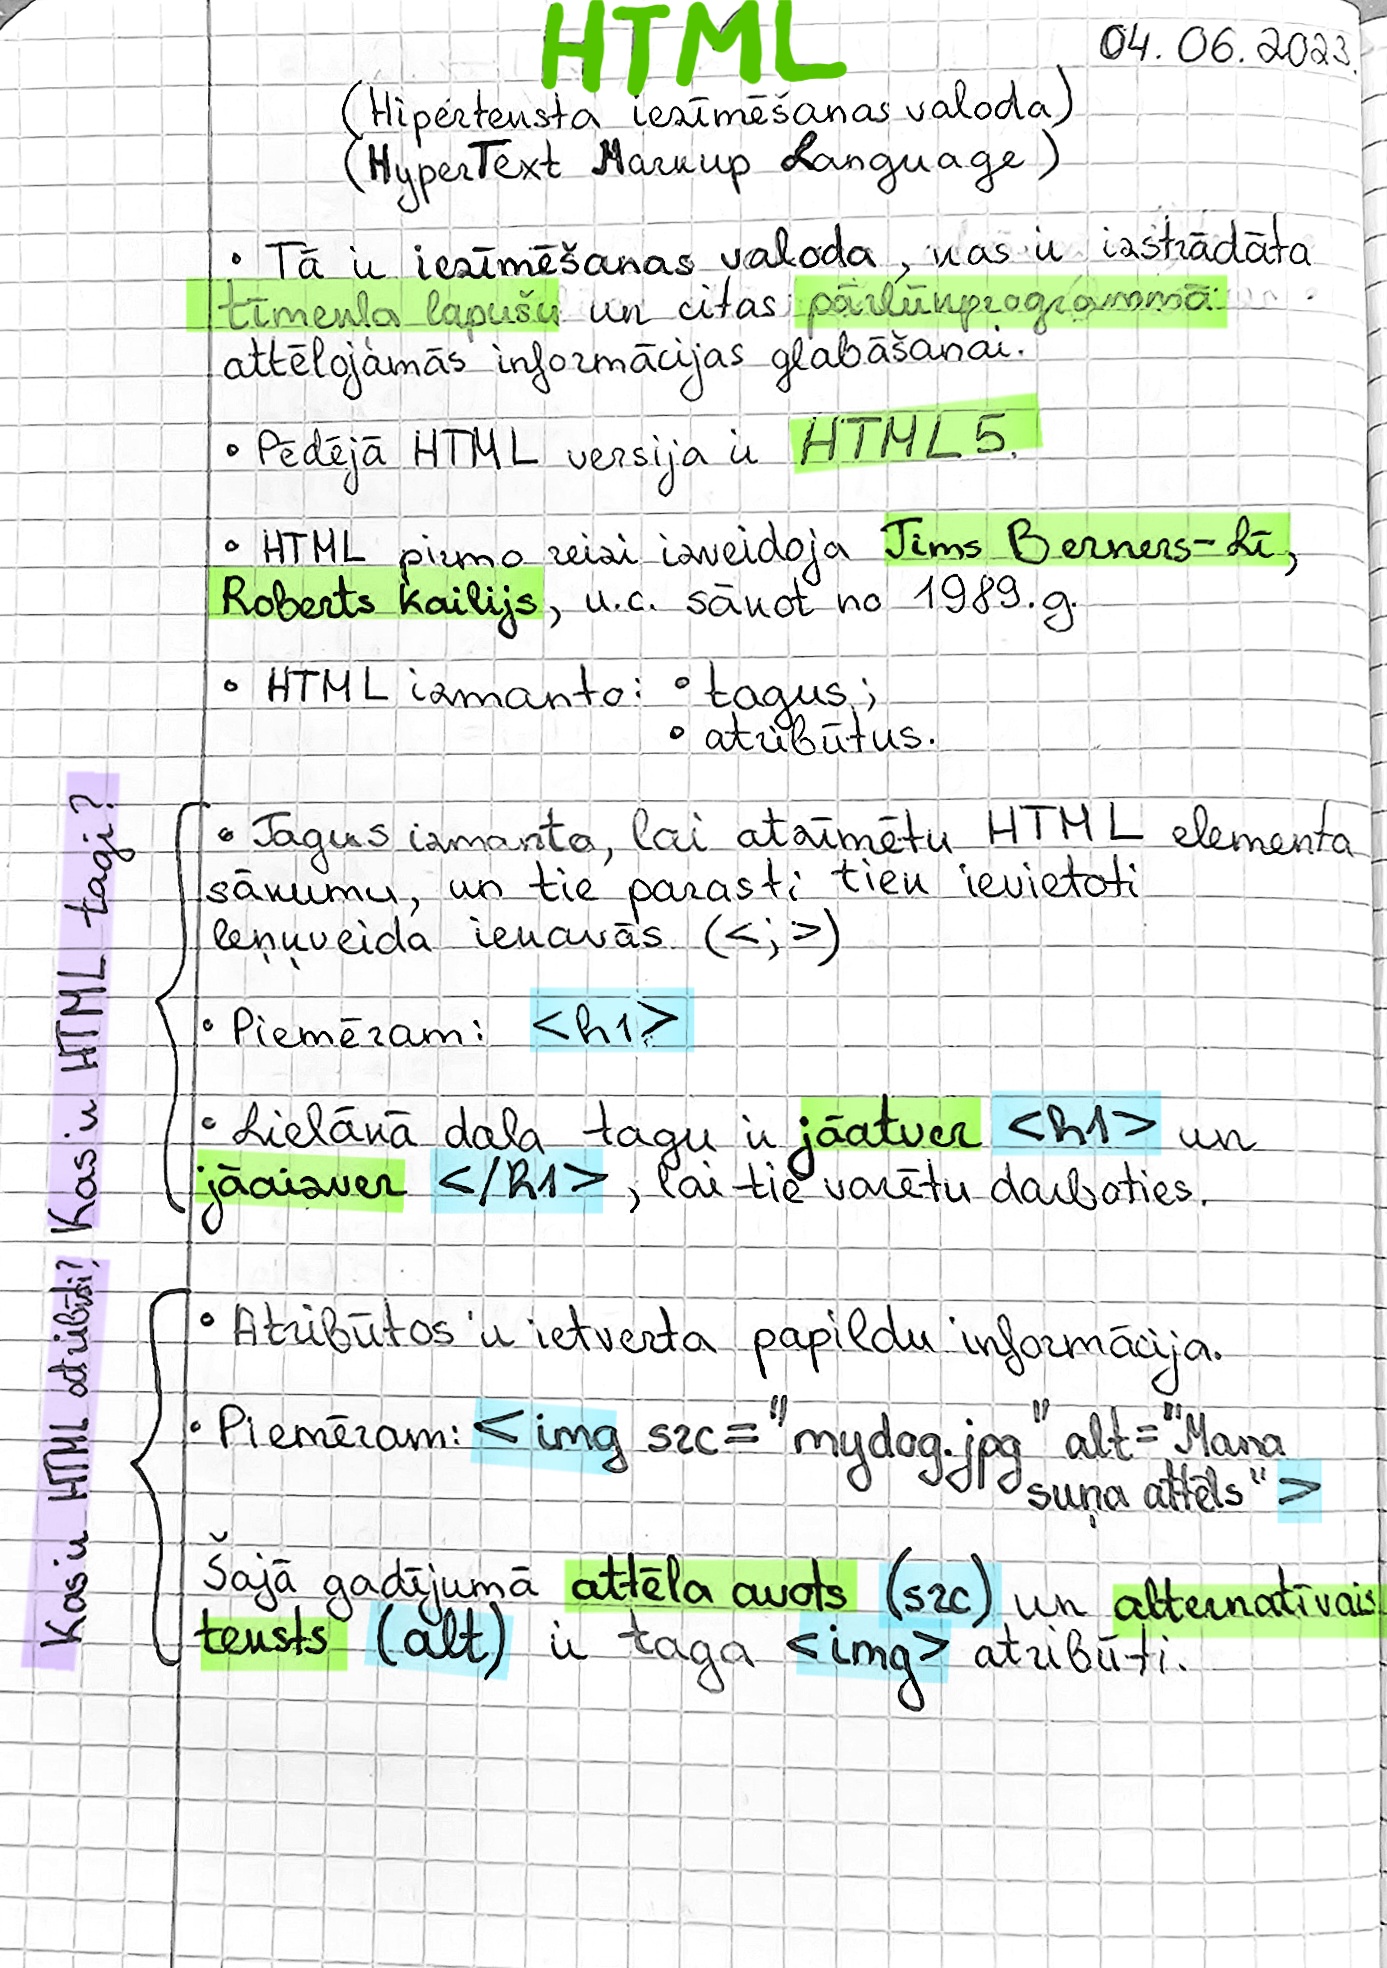 HTML
04.06.2023.
(Hiperteksta iezīmēšanas valoda)
(HyperText Markup Language)
• Tā ir iezīmēšanas valoda, kas ir izstrādāta
tīmekļa lapušu un citas pārlūkprogrammā
attēlojamās informācijas glabāšanai.
• Pēdējā HTML versija ir HTML5.
• HTML pirmo reizi izveidoja Tims Berners-Lī,
Roberts Kailijs, u.c. sākot no 1989.g.
• HTML izmanto: • tagus;
• atribūtus.
Kas ir HTML tagi?
• Tagus izmanto, lai atzīmētu HTML elementa
sākumu, un tie parasti tiek ievietoti
leņķveida iekavās (<;>)
• Piemēram: <h1>
• Lielākā daļa tagu ir jāatver <h1> un
jāaizver </h1>, lai tie varētu darboties.
Kas ir HTML atribūti?
• Atribūtos ir ietverta papildu informācija.
• Piemēram: <img src="mydog.jpg" alt="Mana
suņa attēls">
Šajā gadījumā attēla avots (src) un alternatīvais
teksts (alt) ir taga <img> atribūti.